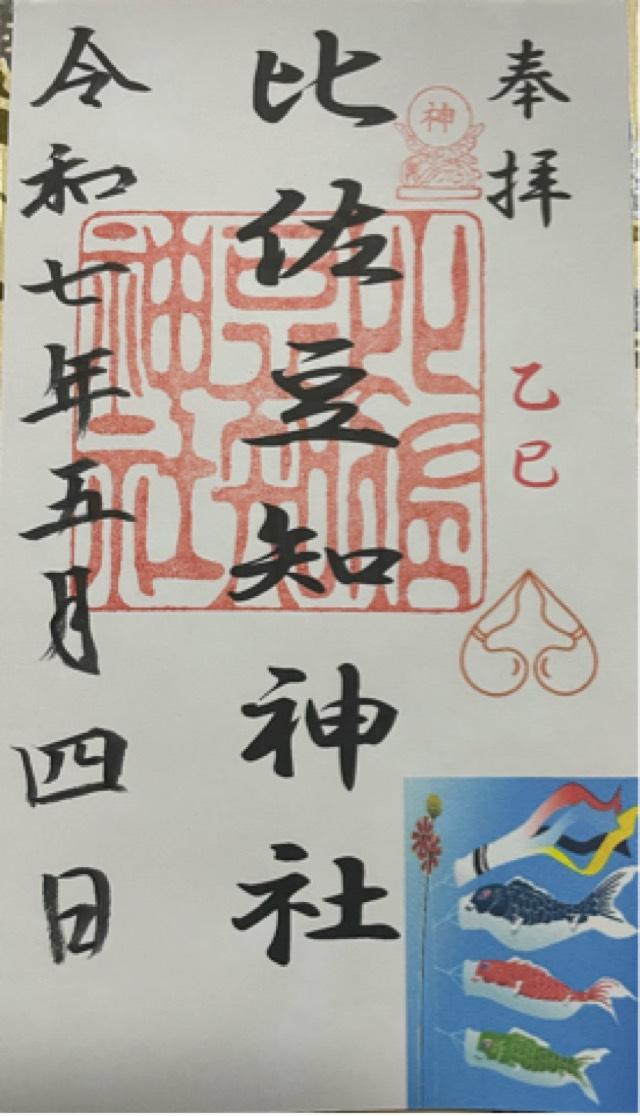 奉拝
神
乙巳
比佐豆知神社
比佐豆知神社
令和七年五月四日